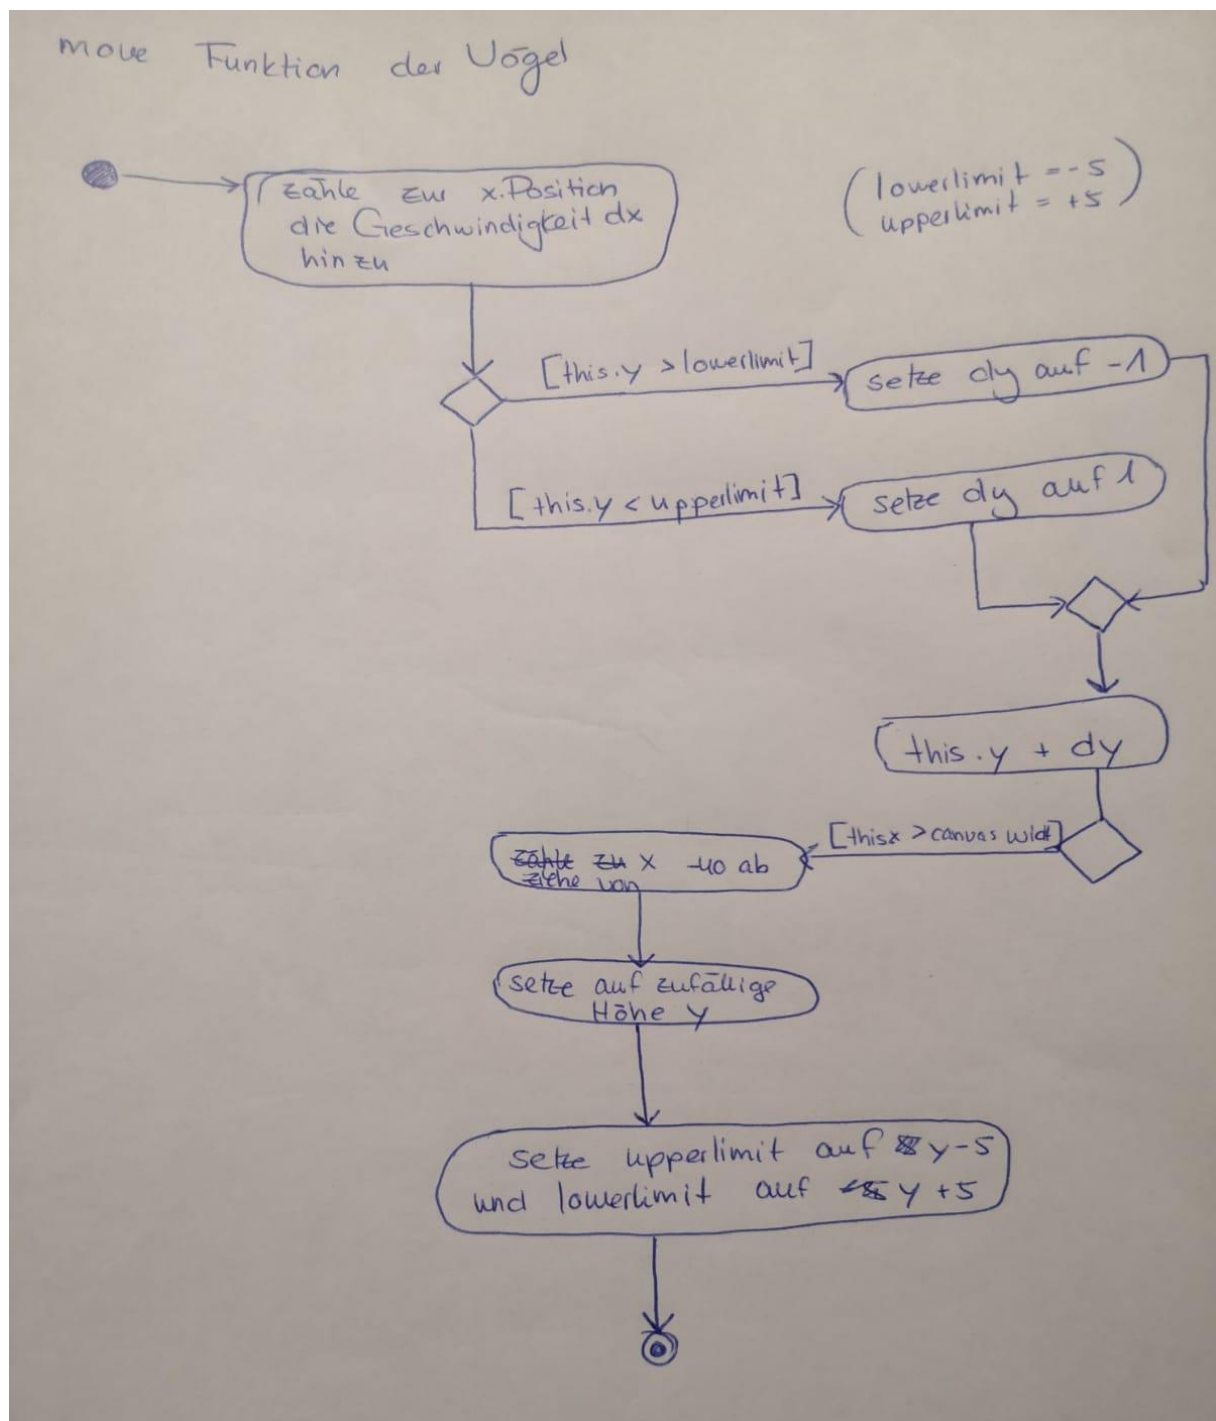 move Funktion der Vögel
(lowerlimit = -5
upperlimit = +5)
zähle zur x.Position
die Geschwindigkeit dx
hinzu
[this.y > lowerlimit]
setze dy auf -1
[this.y < upperlimit]
setze dy auf 1
this.y + dy
[this x > canvas widt]
zähle zu x -40 ab
ziehe von
setze auf zufällige
Höhe y
setze upperlimit auf y-5
und lowerlimit auf y +5